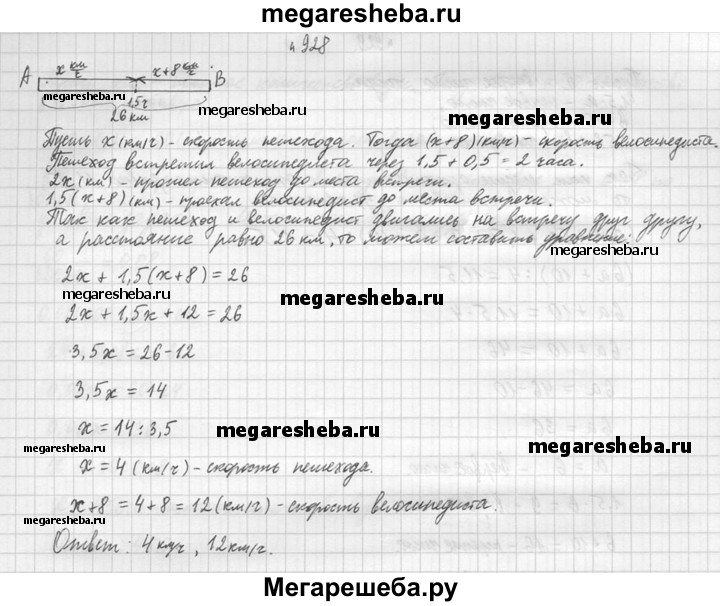 megaresheba.ru
п 928
A x км/ч x+8 км/ч B
megaresheba.ru 1,5ч megaresheba.ru
26 км
Пусть x (км/ч) - скорость пешехода. Тогда (x+8) (км/ч) - скорость велосипедиста.
Пешеход встретил велосипедиста через 1,5 + 0,5 = 2 часа.
2x (км) - прошел пешеход до места встречи.
1,5(x+8) (км) - проехал велосипедист до места встречи.
Так как пешеход и велосипедист двигались на встречу друг другу,
а расстояние равно 26 км, то можем составить уравнение:
2x + 1,5(x+8) = 26
megaresheba.ru megaresheba.ru
2x + 1,5x + 12 = 26
3,5x = 26-12
3,5x = 14
x = 14 : 3,5
megaresheba.ru megaresheba.ru megaresheba.ru
x = 4 (км/ч) - скорость пешехода.
x+8 = 4+8 = 12 (км/ч) - скорость велосипедиста.
megaresheba.ru
Ответ: 4 км/ч, 12 км/ч.
Мегарешеба.ру